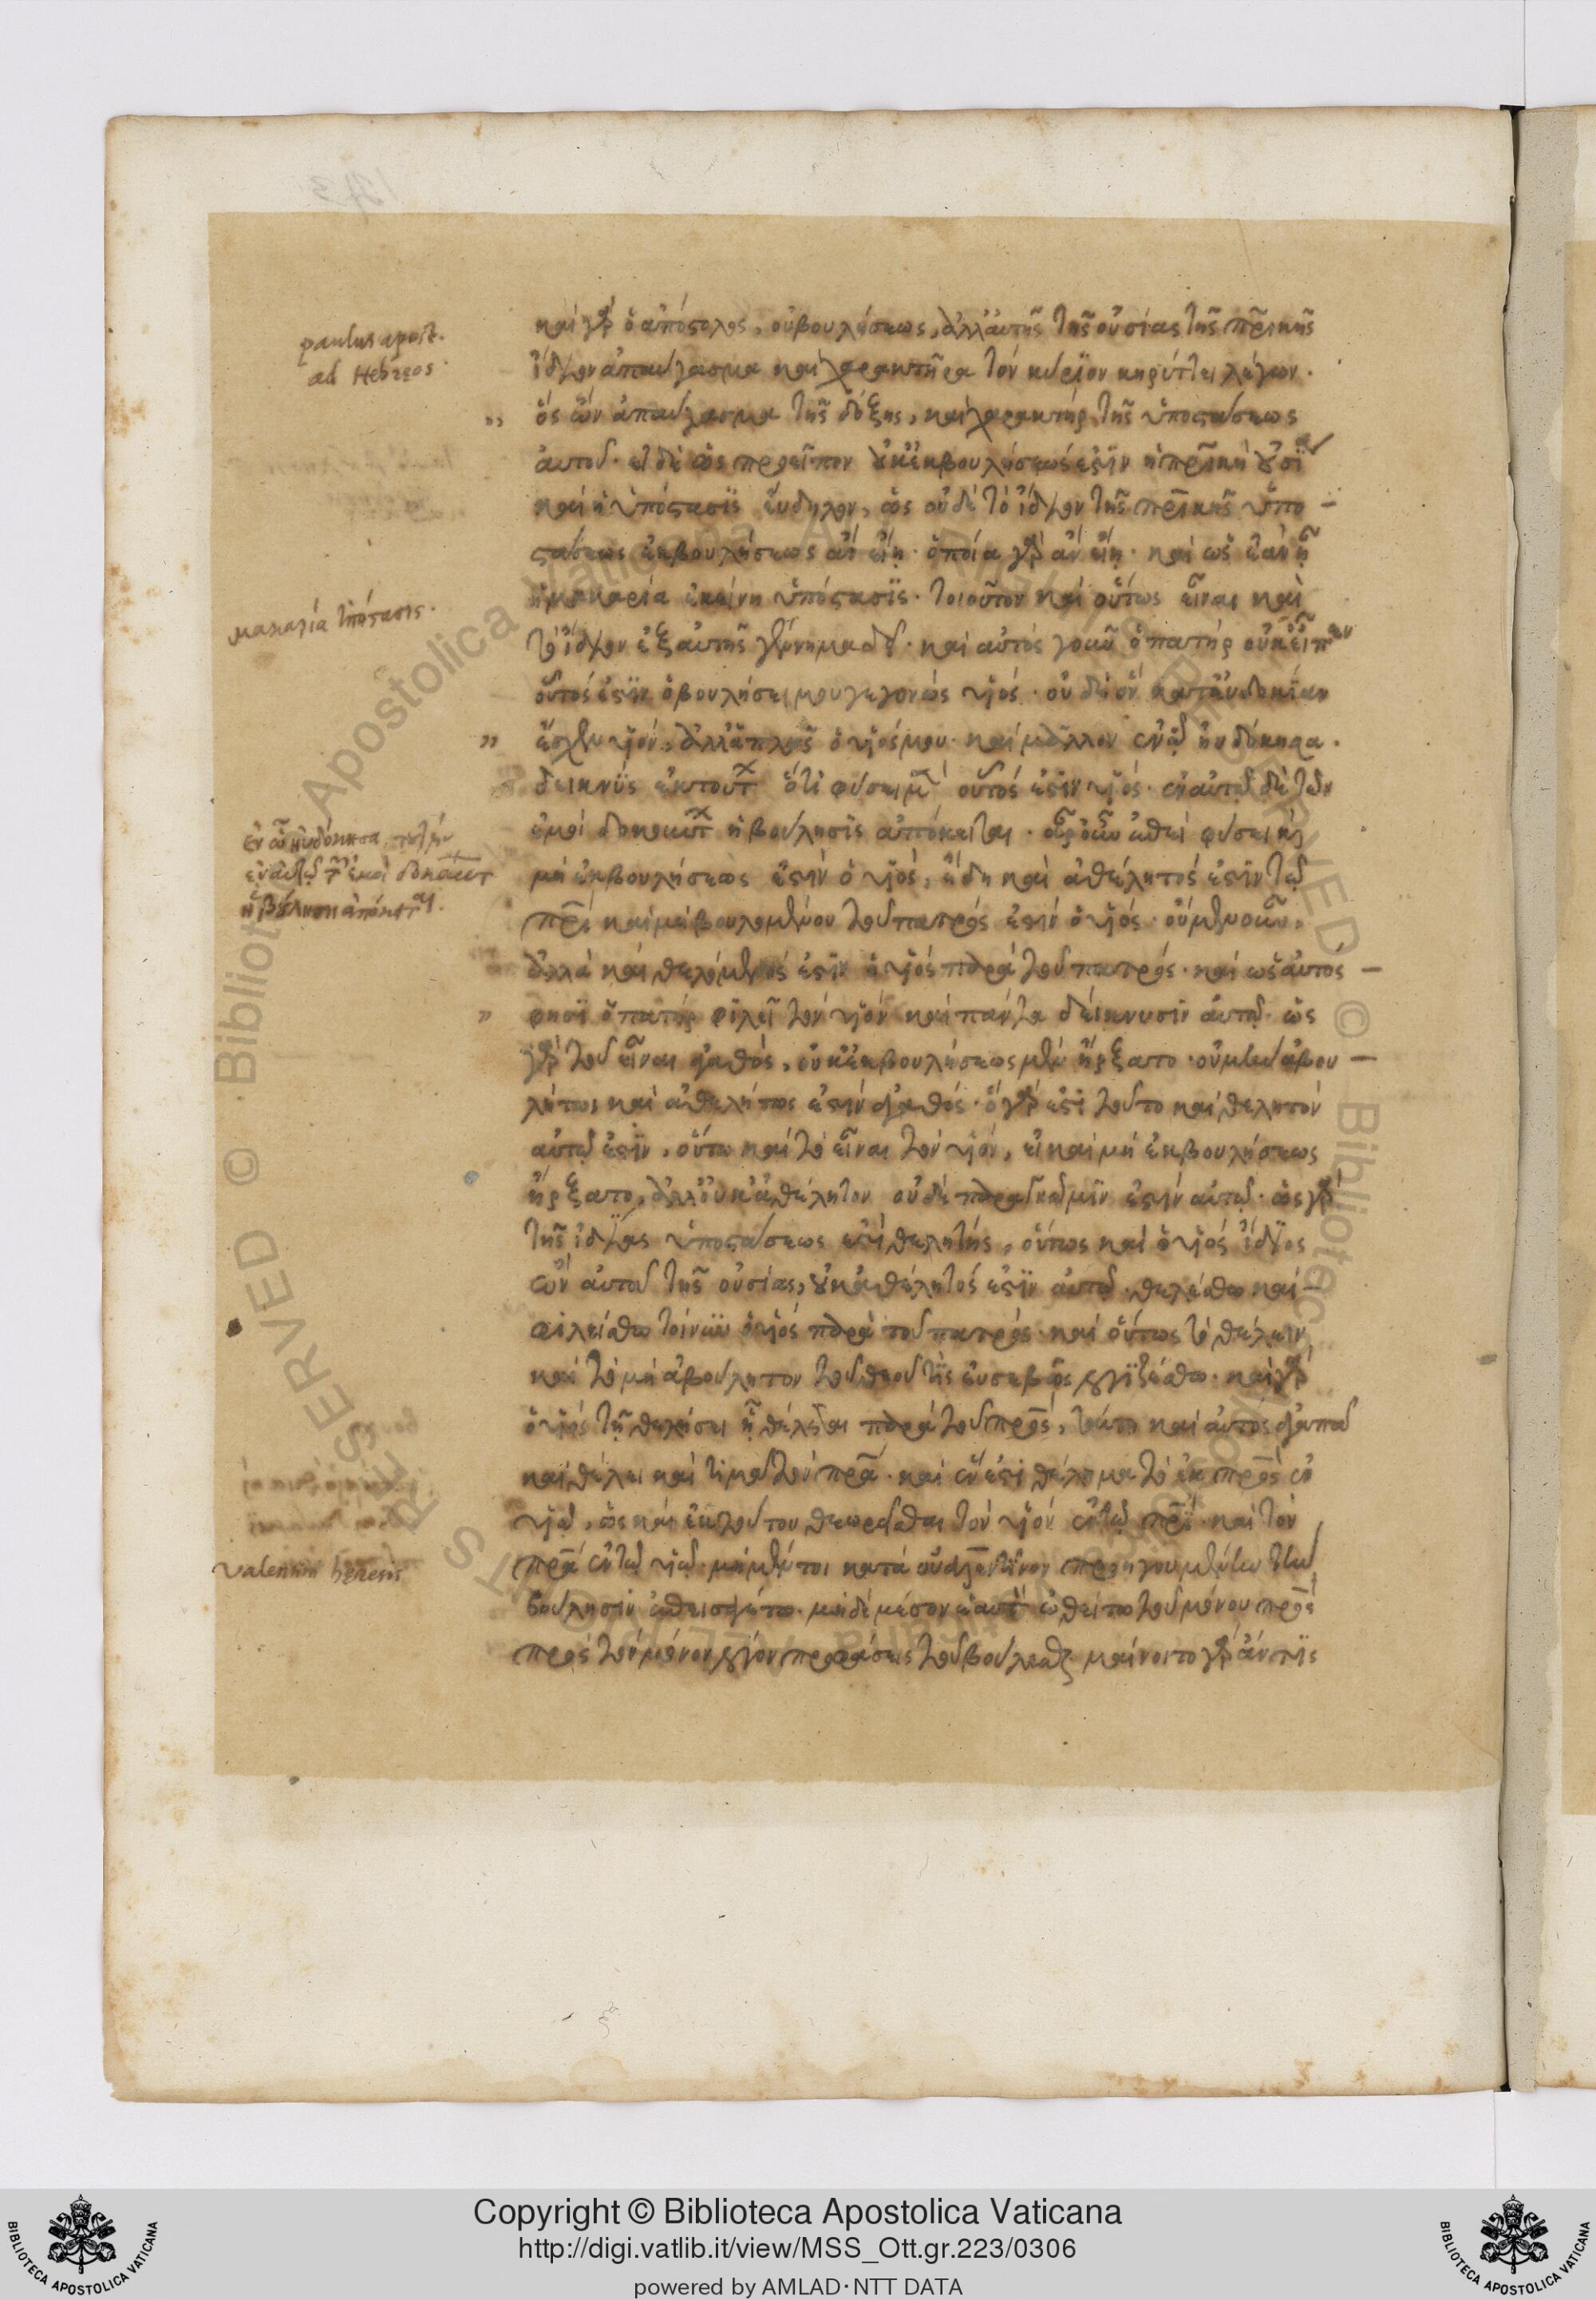 paulus apost.
ad Hebreos.
καὶ γὰρ ὁ ἀπόστολος, οὐ βουλήσεως, ἀλλ' αὐτῆς τῆς οὐσίας τῆς πρικῆς
ἴδιον ἀπαύγασμα καὶ χαρακτῆρα τὸν κύριον κηρύττει λέγων.
,, ὃς ὢν ἀπαύγασμα τῆς δόξης, καὶ χαρακτὴρ τῆς ὑποστάσεως
αὐτοῦ. εἰ δὲ ὡς προεῖπον οὐκ ἐκ βουλήσεώς ἐστιν ἡ πρικὴ οὐσία
καὶ ἡ ὑπόστασις εὔδηλον, ὡς οὐδὲ τὸ ἴδιον τῆς πρικῆς ὑπο –
στάσεως ἐκ βουλήσεως ἂν εἴη. ὁποία γὰρ ἂν εἴη. καὶ ὡς ἐὰν ᾖ
ἡ μακαρία ἐκείνη ὑπόστασις. τοιοῦτον καὶ οὕτως εἶναι καὶ
μακαρία ὑπόστασις.
τὸ ἴδιον ἐξ αὐτῆς γέννημα δεῖ. καὶ αὐτὸς γοῦν ὁ πατὴρ οὐκ εἶπεν
οὗτός ἐστιν ὁ βουλήσει μου γεγονὼς υἱός. οὐδὲ ὃν κατ' εὐδοκίαν
,, ἔσχον υἱόν, ἀλλ' ἁπλῶς ὁ υἱός μου. καὶ μᾶλλον ἐν ᾧ ηὐδόκησα.
δεικνὺς ἐκ τούτου ὅτι φύσει μὲν οὗτός ἐστιν υἱός. ἐν αὐτῷ δὲ τῶν
ἐμοὶ δοκούντων ἡ βούλησις ἀπόκειται. ἆρ' οὖν ἐπεὶ φύσει καὶ
ἐν ᾧ ηὐδόκησα
ἐμοὶ δοκούντ
ἡ βούλησις ἀπόκειται.
μὴ ἐκ βουλήσεως ἐστὶν ὁ υἱός, ἤδη καὶ ἀθέλητός ἐστιν τῷ
πρι καὶ μὴ βουλομένου τοῦ πατρός ἐστιν ὁ υἱός. οὐμενοῦν.
ἀλλὰ καὶ θελόμενός ἐστιν ὁ υἱὸς παρὰ τοῦ πατρός. καὶ ὡς αὐτός –
,, φησὶ ὁ πατὴρ φιλεῖ τὸν υἱὸν καὶ πάντα δείκνυσιν αὐτῷ. ὡς
γὰρ τοῦ εἶναι ἀγαθός, οὐκ ἐκ βουλήσεως μὲν ἤρξατο. οὐ μὴν ἀβου –
λήτως καὶ ἀθελήτως ἐστὶν ἀγαθός. ὃ γάρ ἐστι τοῦτο καὶ θελητόν
αὐτῷ ἐστιν, οὕτω καὶ τὸ εἶναι τὸν υἱόν, εἰ καὶ μὴ ἐκ βουλήσεως
ἤρξατο, ἀλλ' οὐκ ἀθέλητον οὐδὲ παρὰ γνώμην ἐστὶν αὐτῷ. ὡς γὰρ
τῆς ἰδίας ὑποστάσεως ἐστὶ θελητής, οὕτως καὶ ὁ υἱὸς ἴδιος
ὢν αὐτοῦ τῆς οὐσίας, οὐκ ἀθέλητός ἐστιν αὐτῷ. θελέσθω καὶ –
φιλείσθω τοίνυν ὁ υἱὸς παρὰ τοῦ πατρός. καὶ οὕτως τὸ θέλειν
καὶ τὸ μὴ ἀβούλητον τοῦ θεοῦ τὶς εὐσεβῶς λογιζέσθω. καὶ γὰρ
ὁ υἱὸς τῇ θελήσει ᾗ θέλεται παρὰ τοῦ πρς, ταύτῃ καὶ αὐτὸς ἀγαπᾷ
καὶ θέλει καὶ τιμᾷ τὸν πρα. καὶ ἕν ἐστι θέλημα τὸ ἐκ πρς ἐν
υἱῷ, ὡς καὶ ἐκ τούτου θεωρεῖσθαι τὸν υἱὸν ἐν τῷ πρι. καὶ τὸν
πρα ἐν τῷ υἱῷ. μὴ μέντοι κατὰ οὐαλεντῖνον προηγουμένην τὴν
valentini heresis
βούλησιν ἐπεισαγέτω. μηδὲ μέσον ἑαυτὸν ὠθείτω τοῦ μόνου πρς
πρὸς τὸν μόνον λόγον προφάσει τοῦ βούλεσθαι μαίνοιτο γὰρ ἄν τις
Copyright © Biblioteca Apostolica Vaticana
http://digi.vatlib.it/view/MSS_Ott.gr.223/0306
powered by AMLAD·NTT DATA
BIBLIOTECA APOSTOLICA VATICANA
BIBLIOTECA APOSTOLICA VATICANA